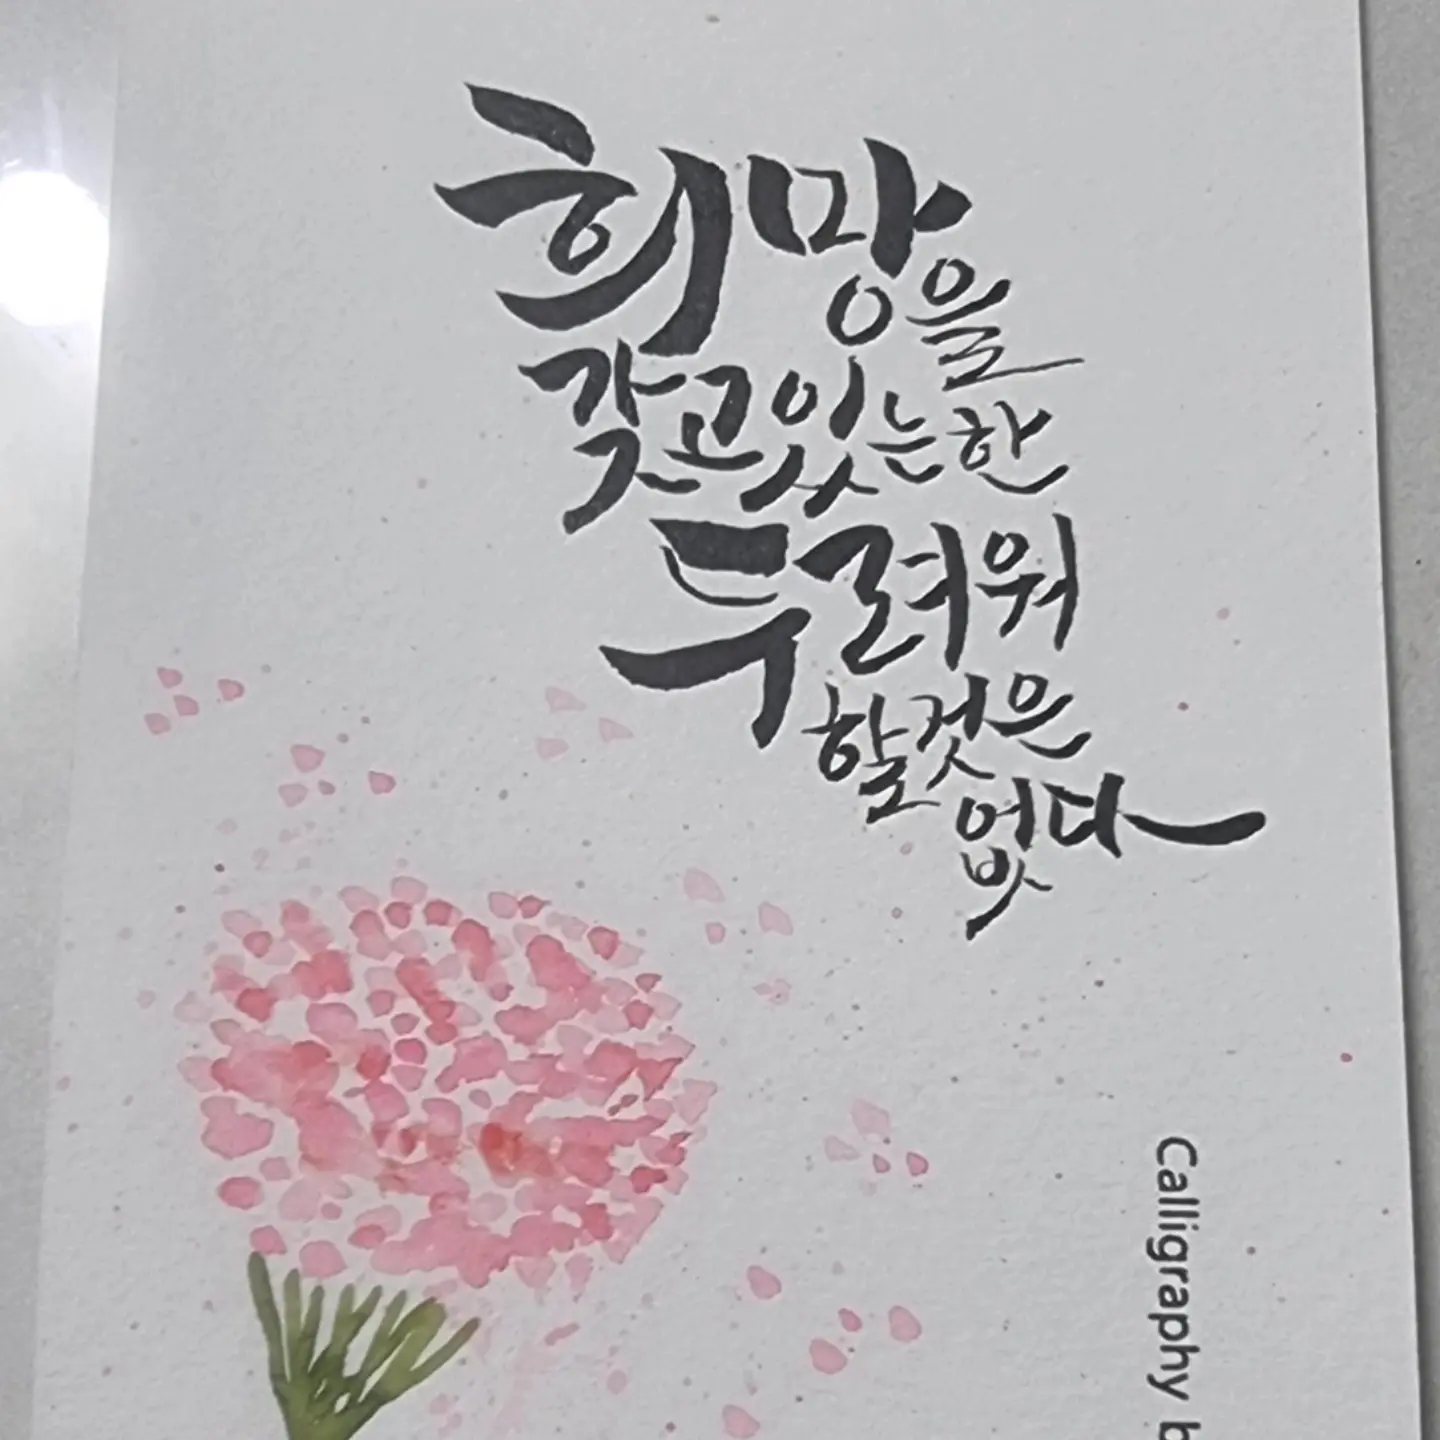 희망을
갖고있는한
두려워
할것은
없다
Calligraphy b